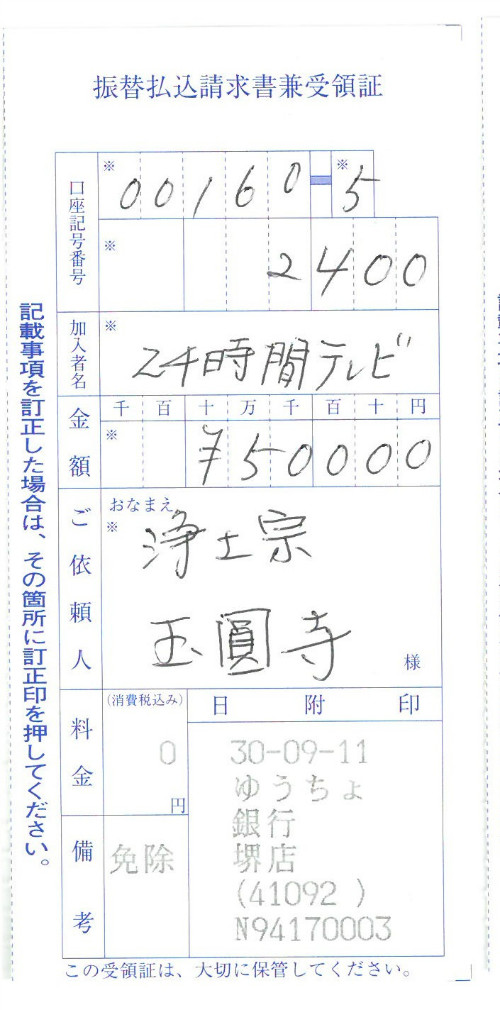 振替払込請求書兼受領証
口座記号番号
※ 00160-※ 5
※ 2400
加入者名
※ 24時間テレビ
金額
千 百 十 万 千 百 十 円
※ ¥50000
ご依頼人
おなまえ
※ 浄土宗
玉圓寺
様
料金
(消費税込み)
0
円
備考
免除
日 附 印
30-09-11
ゆうちょ
銀行
堺店
(41092 )
N94170003
記載事項を訂正した場合は、その箇所に訂正印を押してください。
この受領証は、大切に保管してください。